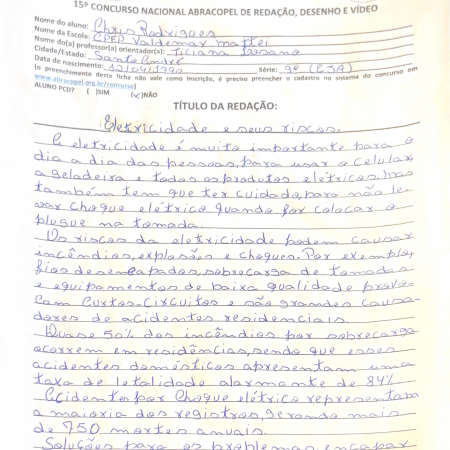 15º CONCURSO NACIONAL ABRACOPEL DE REDAÇÃO, DESENHO E VÍDEO
Nome do aluno: Chris Rodrigues
Nome da Escola: CPFP Valdemar Mattei
Nome do(a) professor(a) orientador(a): Ticiana
Cidade/Estado: Santo André
Data de nascimento: 12/04/1990 Série: 9º (EJA)
(o preenchimento desta ficha não vale como inscrição, é preciso preencher o cadastro no sistema do concurso em
www.abracopel.org.br/concurso)
ALUNO PCD? ( )SIM (x)NÃO
TÍTULO DA REDAÇÃO:
Eletricidade e seus riscos.
A eletricidade é muito importante para o
dia a dia das pessoas, para usar o celular
a geladeira e todos os produtos elétricos, mas
também tem que ter cuidado, para não le-
var choque elétrico quando for colocar o
plugue na tomada.
Os riscos da eletricidade podem causar
incêndios, explosões e choques. Por exemplo,
fios desencapados, sobrecarga de tomadas
e equipamentos de baixa qualidade provo-
cam curtos-circuitos e são grandes causa-
dores de acidentes residenciais.
Quase 50% dos incêndios por sobrecarga
ocorrem em residências, sendo que esses
acidentes domésticos apresentam uma
taxa de letalidade alarmante de 84%
Acidentes por choque elétrico representam
a maioria dos registros, gerando mais
de 750 mortes anuais.
Soluções para os problemas encapar